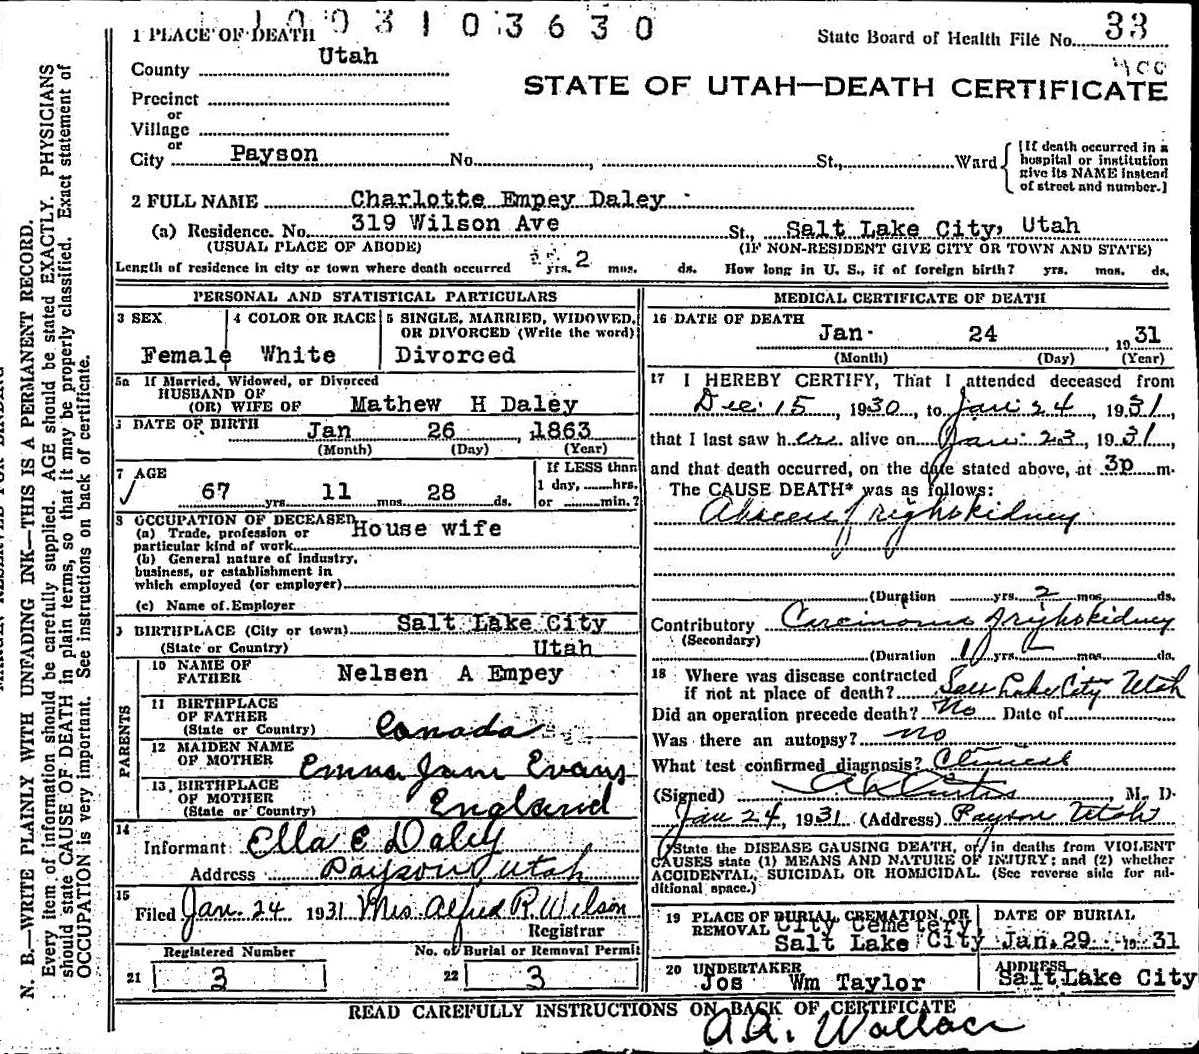 1003103630
1 PLACE OF DEATH
State Board of Health File No. 33
County Utah
400
STATE OF UTAH—DEATH CERTIFICATE
Precinct
or
Village
or
City Payson No. , St., Ward
{If death occurred in a
hospital or institution
give its NAME instead
of street and number.}
2 FULL NAME Charlotte Empey Daley
(a) Residence. No. 319 Wilson Ave St., Salt Lake City, Utah
(USUAL PLACE OF ABODE) (IF NON-RESIDENT GIVE CITY OR TOWN AND STATE)
Length of residence in city or town where death occurred yrs. 2 mos. ds. How long in U. S., if of foreign birth? yrs. mos. ds.
PERSONAL AND STATISTICAL PARTICULARS
3 SEX
Female
4 COLOR OR RACE
White
5 SINGLE, MARRIED, WIDOWED,
OR DIVORCED (Write the word)
Divorced
5a If Married, Widowed, or Divorced
HUSBAND OF
(OR) WIFE OF Mathew H Daley
DATE OF BIRTH Jan 26, 1863
(Month) (Day) (Year)
7 AGE
67 yrs. 11 mos. 28 ds.
If LESS than
1 day, hrs.
or min.?
8 OCCUPATION OF DECEASED
(a) Trade, profession or House wife
particular kind of work
(b) General nature of industry,
business, or establishment in
which employed (or employer)
(c) Name of Employer
9 BIRTHPLACE (City or town) Salt Lake City
(State or Country) Utah
PARENTS
10 NAME OF
FATHER Nelsen A Empey
11 BIRTHPLACE
OF FATHER
(State or Country) Canada
12 MAIDEN NAME
OF MOTHER Emma Jane Evans
13 BIRTHPLACE
OF MOTHER
(State or Country) England
14
Informant Ella E Daley
Address Payson Utah
15
Filed Jan. 24 1931 Mrs Alfred R Wilson
Registrar
Registered Number
21 3
No. of Burial or Removal Permit
22 3
MEDICAL CERTIFICATE OF DEATH
16 DATE OF DEATH
Jan. 24, 1931
(Month) (Day) (Year)
17 I HEREBY CERTIFY, That I attended deceased from
Dec. 15, 1930, to Jan 24, 1931,
that I last saw her alive on Jan. 23, 1931,
and that death occurred, on the date stated above, at 3p m.
The CAUSE DEATH* was as follows:
Abscess of right kidney
(Duration yrs. 2 mos. ds.
Contributory Carcinoma of right kidney
(Secondary)
(Duration 1 yrs. mos. ds.
18 Where was disease contracted
if not at place of death? Salt Lake City Utah
Did an operation precede death? No Date of
Was there an autopsy? no
What test confirmed diagnosis? Clinical
(Signed) A L Curtis, M. D.
Jan 24, 1931 (Address) Payson Utah
*State the DISEASE CAUSING DEATH, or in deaths from VIOLENT
CAUSES state (1) MEANS AND NATURE OF INJURY; and (2) whether
ACCIDENTAL, SUICIDAL OR HOMICIDAL. (See reverse side for ad-
ditional space.)
19 PLACE OF BURIAL, CREMATION, OR
REMOVAL City Cemetery
Salt Lake City
DATE OF BURIAL
Jan. 29 1931
20 UNDERTAKER
Jos Wm Taylor
ADDRESS
Salt Lake City
READ CAREFULLY INSTRUCTIONS ON BACK OF CERTIFICATE
A.A. Wallace
N. B.—WRITE PLAINLY WITH UNFADING INK—THIS IS A PERMANENT RECORD.
Every item of information should be carefully supplied. AGE should be stated EXACTLY. PHYSICIANS
should state CAUSE OF DEATH in plain terms, so that it may be properly classified. Exact statement of
OCCUPATION is very important. See instructions on back of certificate.